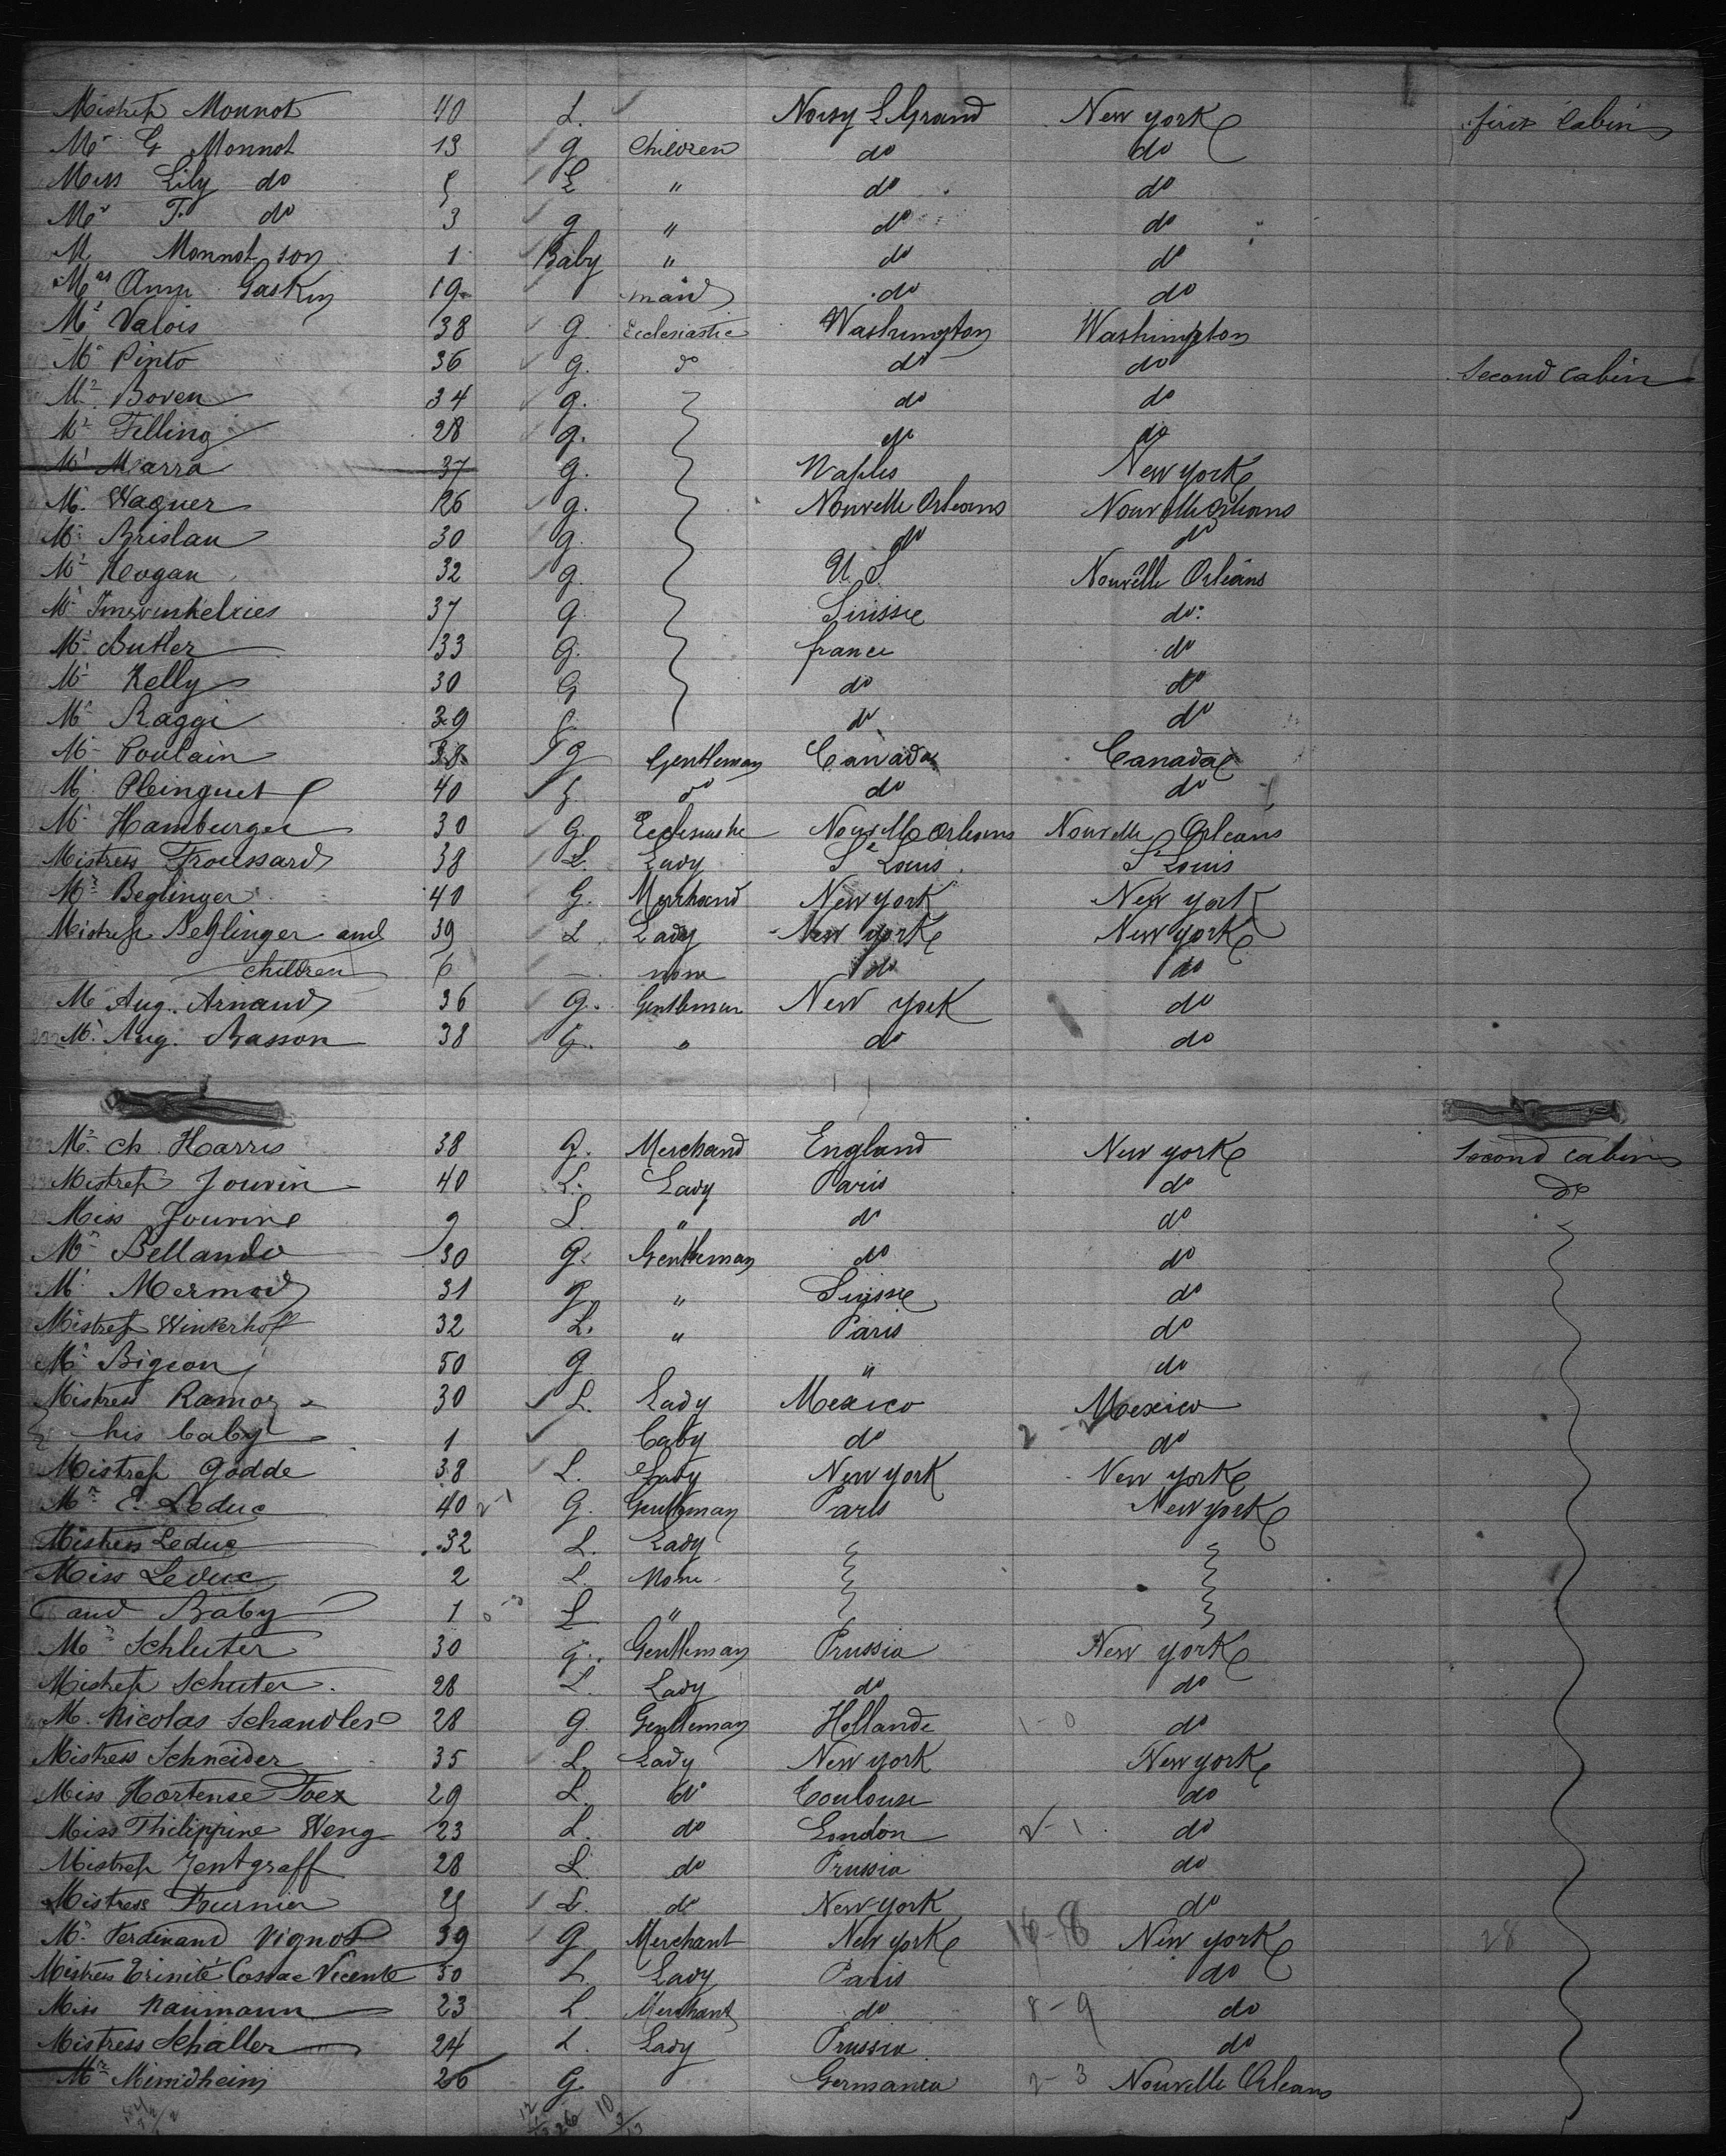 Mistress Monnot 40 L. Noisy L Grand New York first Cabin
Mr G Monnot 13 g Children do do
Miss Lily do 5 L " do do
Mr F. do 3 g " do do
M Monnot son 1 Baby " do do
Mrs Ann Gaskin 19 maid do do
Mr Valois 38 g. Ecclesiastic Washington Washington
Mr Pinto 36 g. do do do Second Cabin
Mr Boven 34 g. do do
Mr Filling 28 g. do do
Mr Marra 37 g. Naples New York
Mr. Waguer 26 g. Nouvelle Orleans Nouvelle Orleans
Mr Brislan 30 g. do do
Mr Hogan 32 g. U S Nouvelle Orleans
Mr Imwinkelries 37 g. Suisse do
Mr Butler 33 g. france do
Mr Kelly 30 G do do
Mr Raggi 39 g. do do
Mr Poulain 38 g Gentleman Canada Canada
Mr Plinguet 40 g. do do do
Mr Hamburger 30 G. Ecclesiastic Nouvelle Orleans Nouvelle Orleans
Mistress Froussard 38 L. Lady St Louis St Louis
Mr Beglinger 40 G. Merchand New York New York
Mistress Beglinger and 39 L Lady New York New York
children 6 — none do do
Mr Aug. Arnaud 36 g. Gentleman New York do
Mr. Aug. Basson 38 G. " do do
Mr. Ch Harris 38 G. Merchand England New York Second Cabin
Mistress Jouvin 40 L. Lady Paris do do
Miss Jouvine 9 L " do do
Mr Bellando 30 g. Gentleman do do
Mr Mermod 31 g. " Suisse do
Mistress Winkerhoff 32 L. " Paris do
Mr Bigeon 50 g " do
Mistress Ramos 30 L. Lady Mexico Mexico
his baby 1 baby do do
Mistress Godde 38 L. Lady New York New York
Mr E. Leduc 40 G. Gentleman Paris New York
Mistress Leduc 32 L. Lady
Miss Leduc 2 L. None
and Baby 1 L "
Mr Schluter 30 g. Gentleman Prussia New York
Mistress Schuter 28 L. Lady do do
M. Nicolas Schandler 28 g. Gentleman Hollande 1-0 do
Mistress Schneider 35 L. Lady New York New York
Miss Hortense Foex 29 L. do Toulouse do
Miss Philippine Weng 23 L. do London 2-1 do
Mistress Jentgraff 28 L. do Prussia do
Mistress Fournier L. do New York do
Mr Ferdinand Vignol 39 G Merchant New York 16-8 New York 28
Mistress Trinité Cossac Vicente 50 L. Lady Paris do
Miss Naumann 23 L Merchant do 8-9 do
Mistress Schaller 24 L. Lady Prussia do
Mr Mimdheim 26 G. Germania 2-3 Nouvelle Orleans